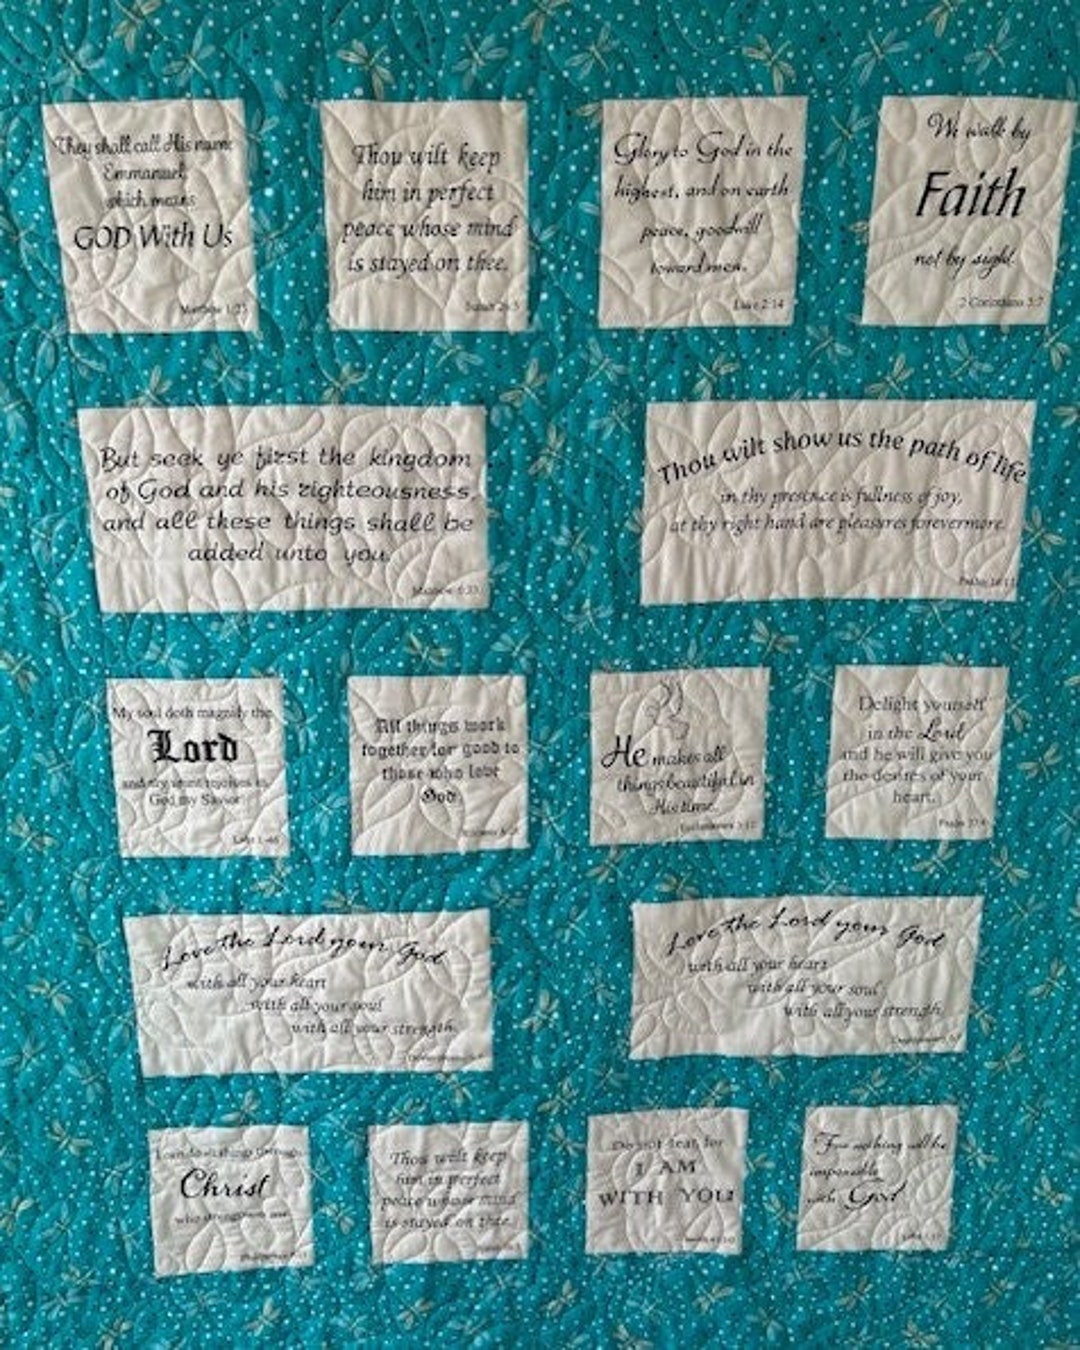 They shall call His name
Emmanuel;
which means
GOD With Us
Matthew 1:23
Thou wilt keep
him in perfect
peace whose mind
is stayed on thee.
Isaiah 26:3
Glory to God in the
highest, and on earth
peace, goodwill
toward men.
Luke 2:14
We walk by
Faith
not by sight.
2 Corinthians 5:7
But seek ye first the kingdom
of God and his righteousness,
and all these things shall be
added unto you.
Matthew 6:33
Thou wilt show us the path of life
in thy presence is fullness of joy,
at thy right hand are pleasures forevermore.
Psalm 16:11
My soul doth magnify the
Lord
and my spirit rejoices in
God my Savior
Luke 1:46
All things work
together for good to
those who love
God.
Romans 8:28
He makes all
things beautiful in
His time.
Ecclesiastes 3:11
Delight yourself
in the Lord
and he will give you
the desires of your
heart.
Psalm 37:4
Love the Lord your God
with all your heart
with all your soul
with all your strength.
Deuteronomy
Love the Lord your God
with all your heart
with all your soul
with all your strength.
Deuteronomy
I can do all things through
Christ
who strengthens me.
Philippians
Thou wilt keep
him in perfect
peace whose mind
is stayed on thee.
Do not fear, for
I AM
WITH YOU
For nothing will be
impossible
with God